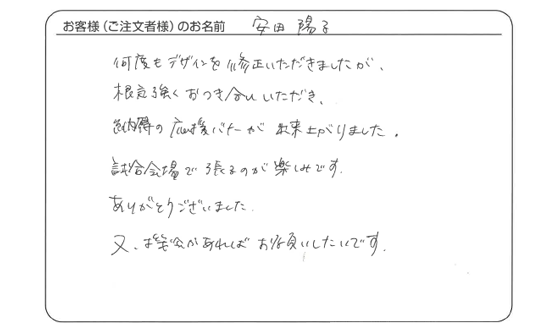 お客様（ご注文者様）のお名前 安田 陽子
何度もデザインを修正いただきましたが、
根気強くおつき合いいただき、
納得の応援バナーが出来上がりました。
試合会場で張るのが楽しみです。
ありがとうございました。
又、機会があればお願いしたいです。